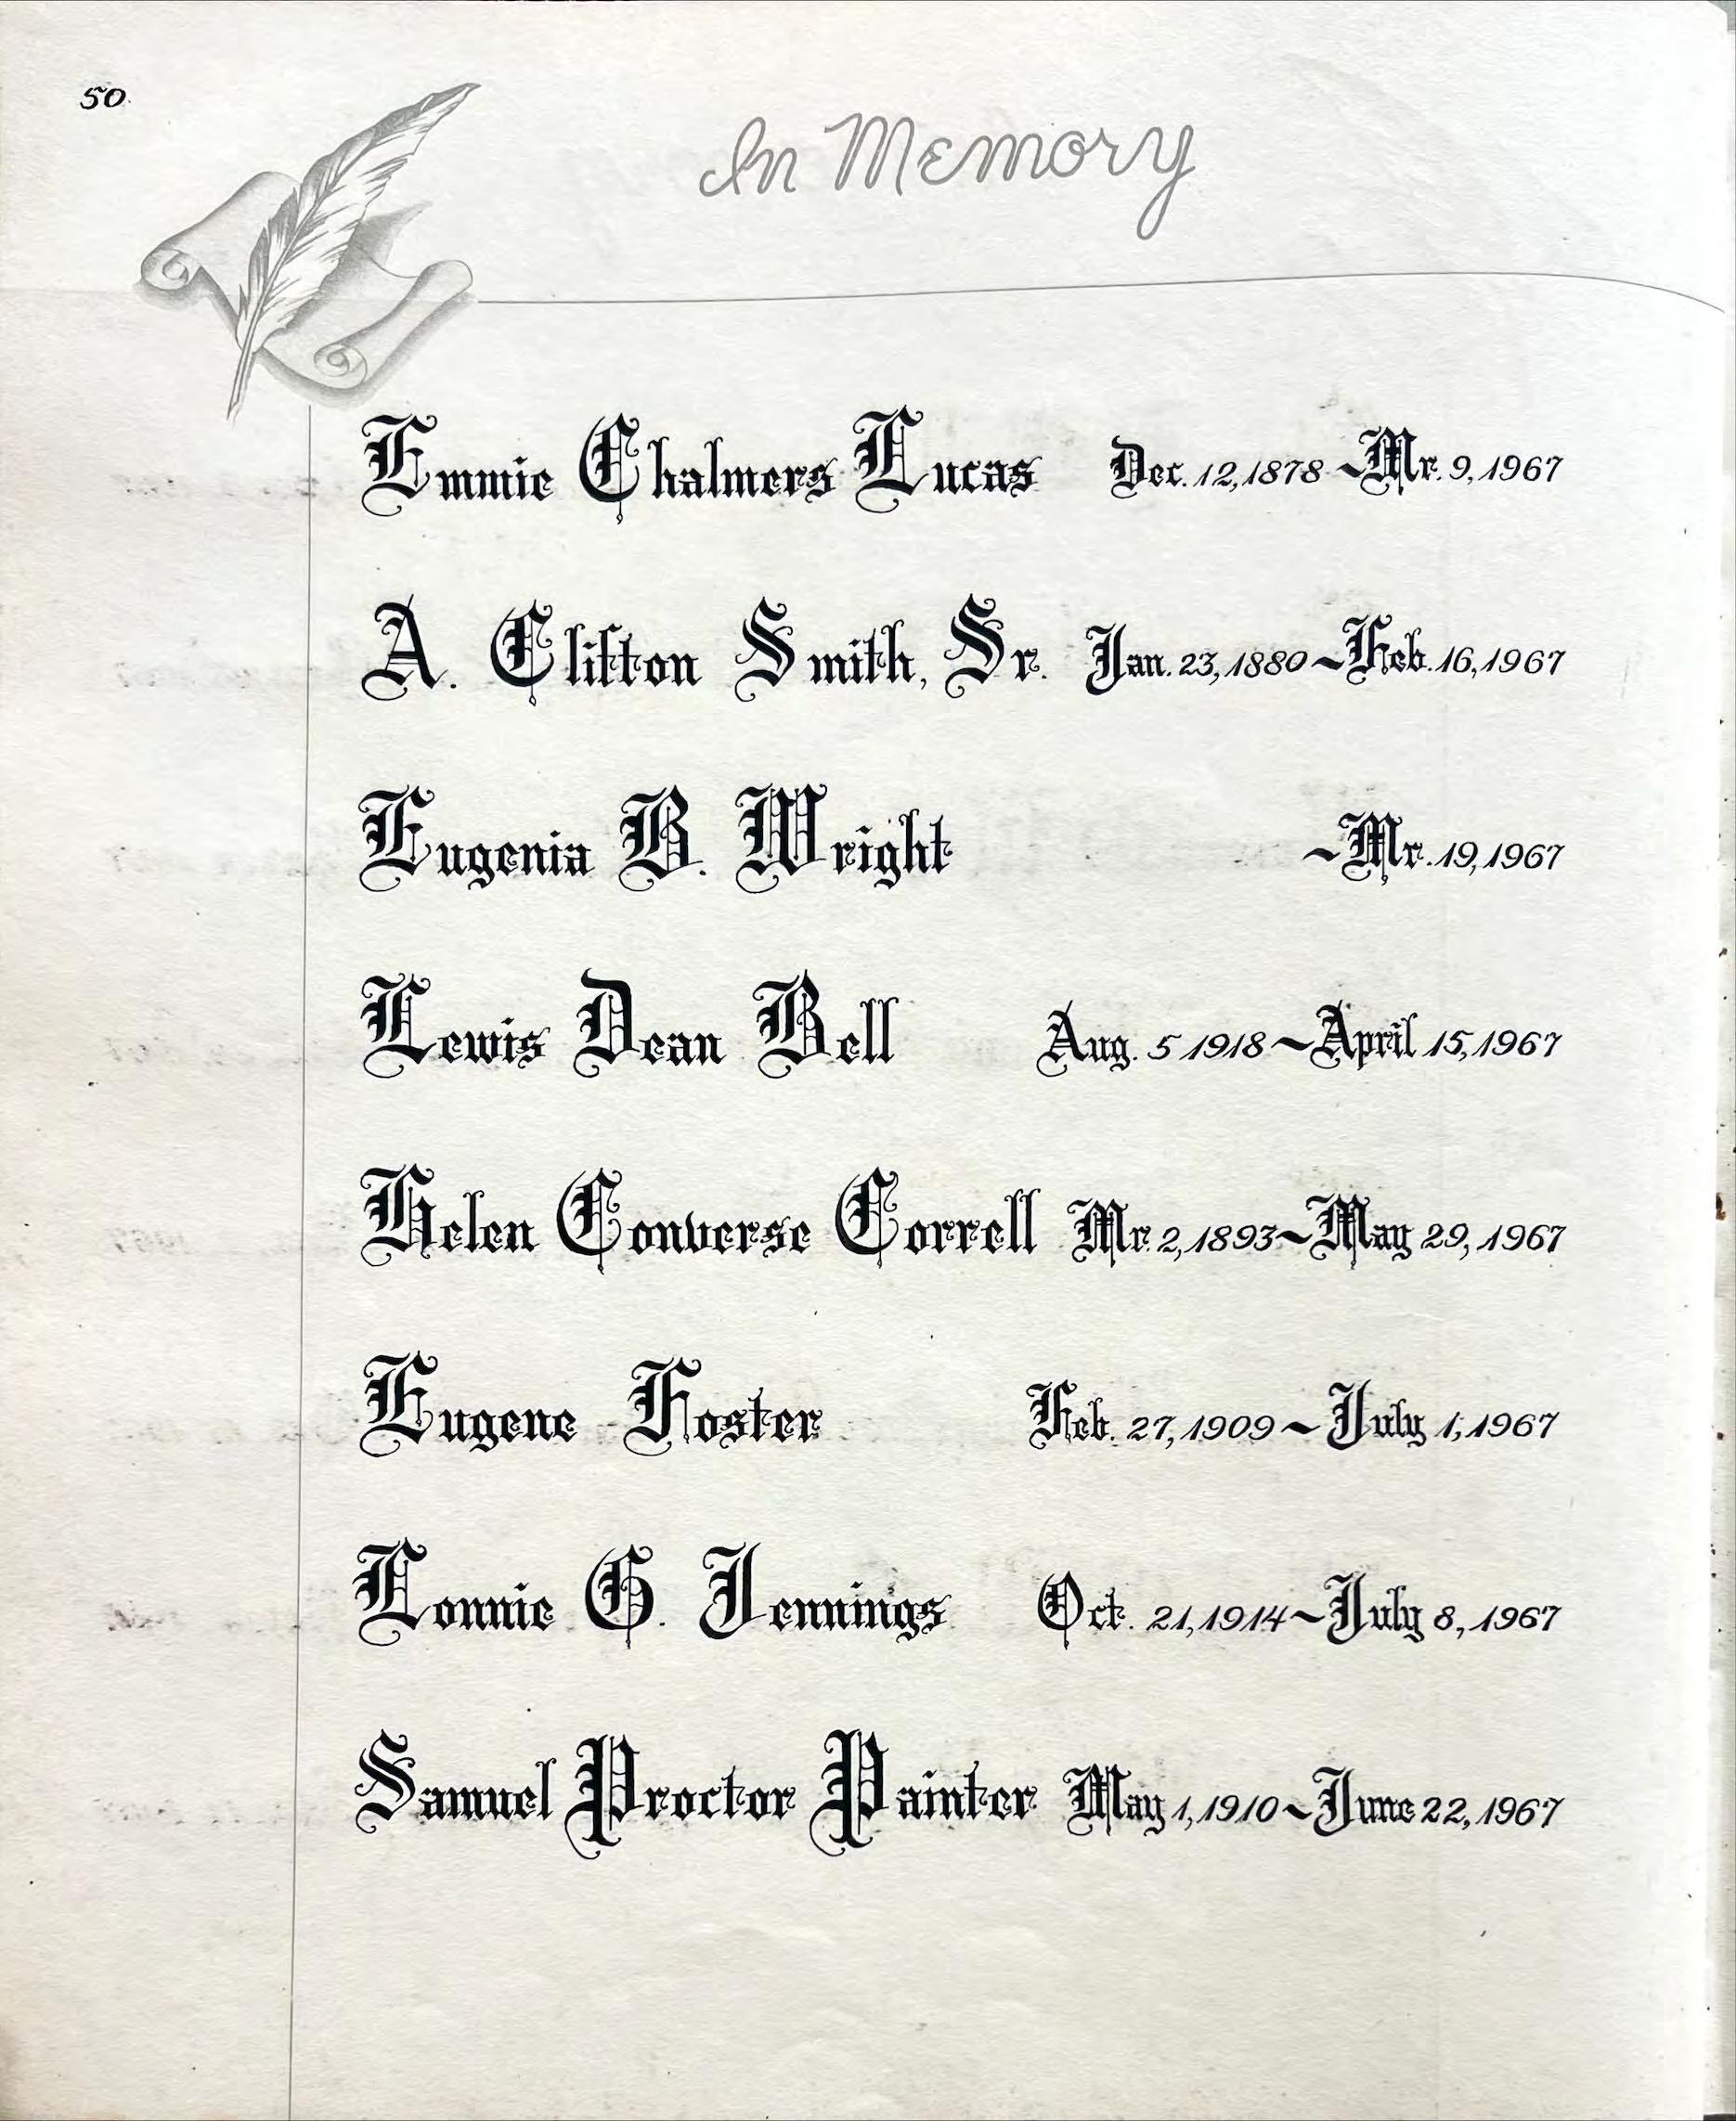 50.
In Memory
Emmie Chalmers Lucas Dec. 12, 1878 ~ Mr. 9, 1967
A. Clifton Smith, Sr. Jan. 23, 1880 ~ Feb. 16, 1967
Eugenia B. Wright ~ Mr. 19, 1967
Lewis Dean Bell Aug. 5 1918 ~ April 15, 1967
Helen Converse Correll Mr. 2, 1893 ~ May 29, 1967
Eugene Foster Feb. 27, 1909 ~ July 1, 1967
Lonnie G. Jennings Oct. 21, 1914 ~ July 8, 1967
Samuel Proctor Painter May 1, 1910 ~ June 22, 1967